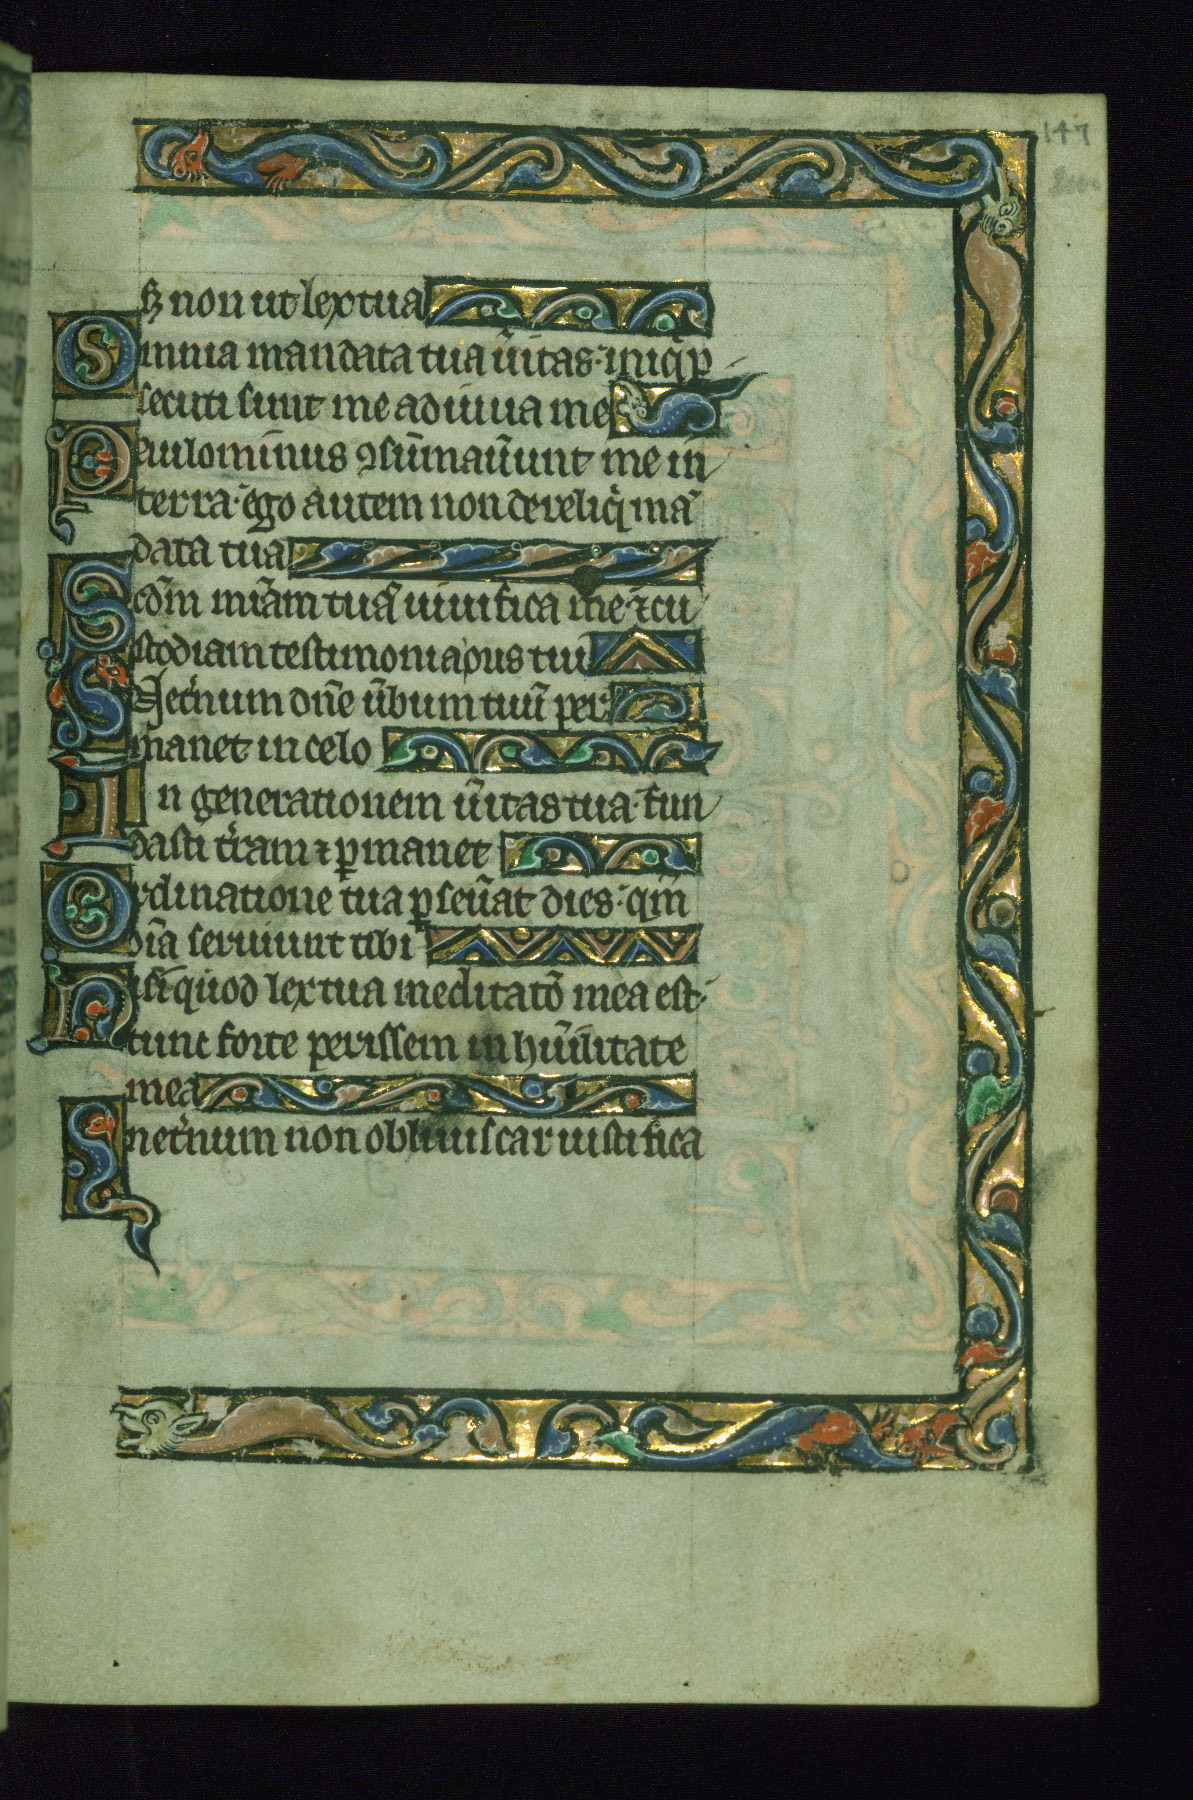 147
sꝫ non ut lex tua
Omnia mandata tua ũitas· iniq̃ p̱
secuti sunt me adiuua me
Paulominus ꝯsũmaũunt me in
terra· ego autem non dereliq̃ mã
data tua
Scdm̃ mĩam tuã uiuifica me· ⁊ cu
stodiam testimonia oris tui
In et̃num dñe ũbum tuũ per
manet in celo
In generationem ũitas tua· fun
dasti t̃ram ⁊ ꝑmanet
Ordinatione tua ꝑseũat dies· qm̃
oĩa seruiunt tibi
Nisi quod lex tua meditatõ mea est·
tunc forte perissem in hũilitate
mea
In et̃num non obliuiscar iustifica